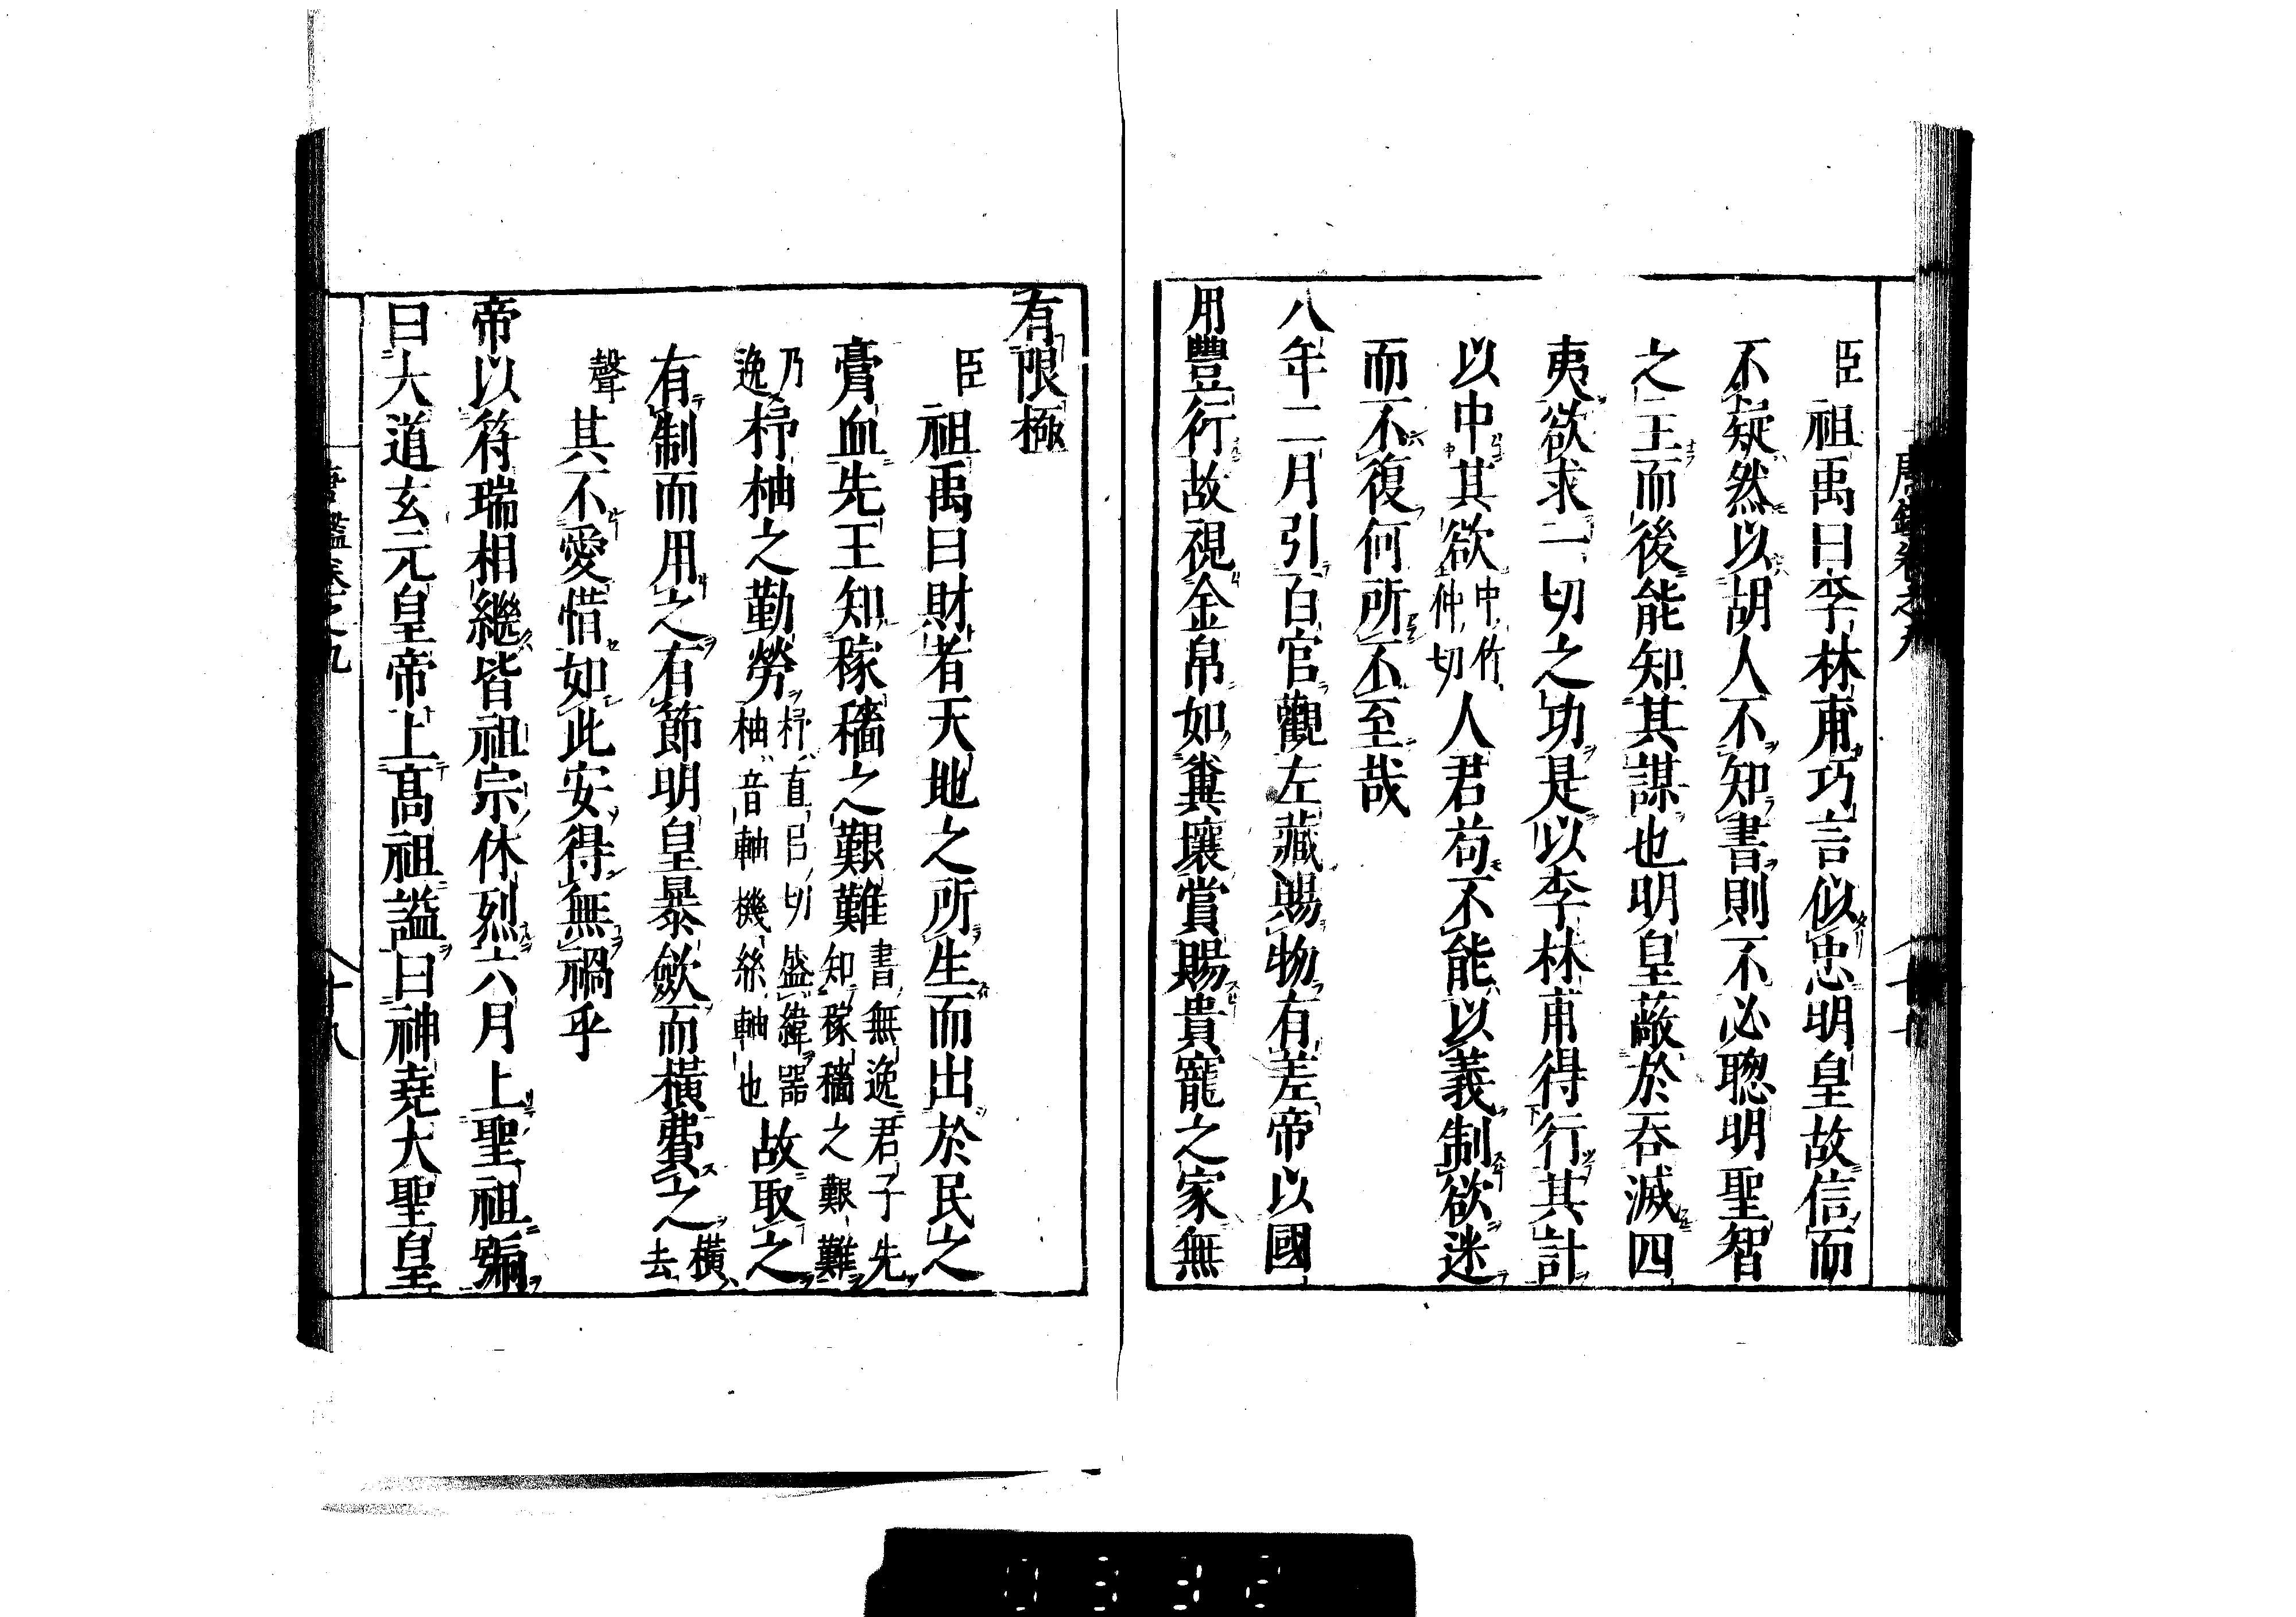 臣祖禹曰李林甫巧言似忠明皇故信而
不疑然以胡人不知書則不必聰明聖智
之主而後能知其謀也明皇蔽於吞滅四
夷欲求一切之功是以李林甫得行其計
以中其欲中竹仲切人君苟不能以義制欲迷
而不復何所不至哉
八年二月引百官觀左藏賜物有差帝以國
用豐衍故視金帛如糞壤賞賜貴寵之家無
有限極
臣祖禹曰財者天地之所生而出於民之
膏血先王知稼穡之艱難書無逸君子先知稼穡之艱難
乃逸杼柚之勤勞杼直呂切盛緯器柚音軸機絲軸也故取之
有制而用之有節明皇暴斂而橫費之橫去
聲其不愛惜如此安得無禍乎
帝以符瑞相繼皆祖宗休烈六月上聖祖號
曰大道玄元皇帝上高祖謚曰神堯大聖皇
唐鑑卷之九
十八
0332